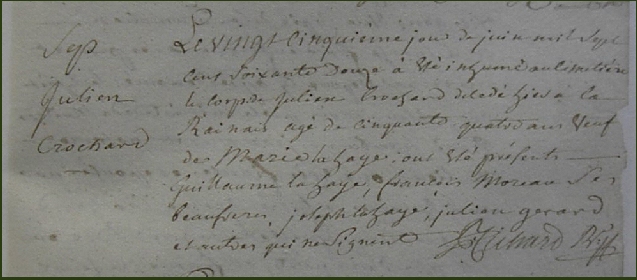 Sep
Julien
Crochard
Le vingt cinquieme jour de juin mil sept
cens soixante douze a été inhumé au cimetiere
le corps de julien Crochard decedé hier à la
Rainais agé de cinquante quatre ans veuf
de Marie lahaye, ont été présents
Guillaume lahaye, françois Moreau ses
beaufreres, joseph lahaye, julien gerard
et autres qui ne signent